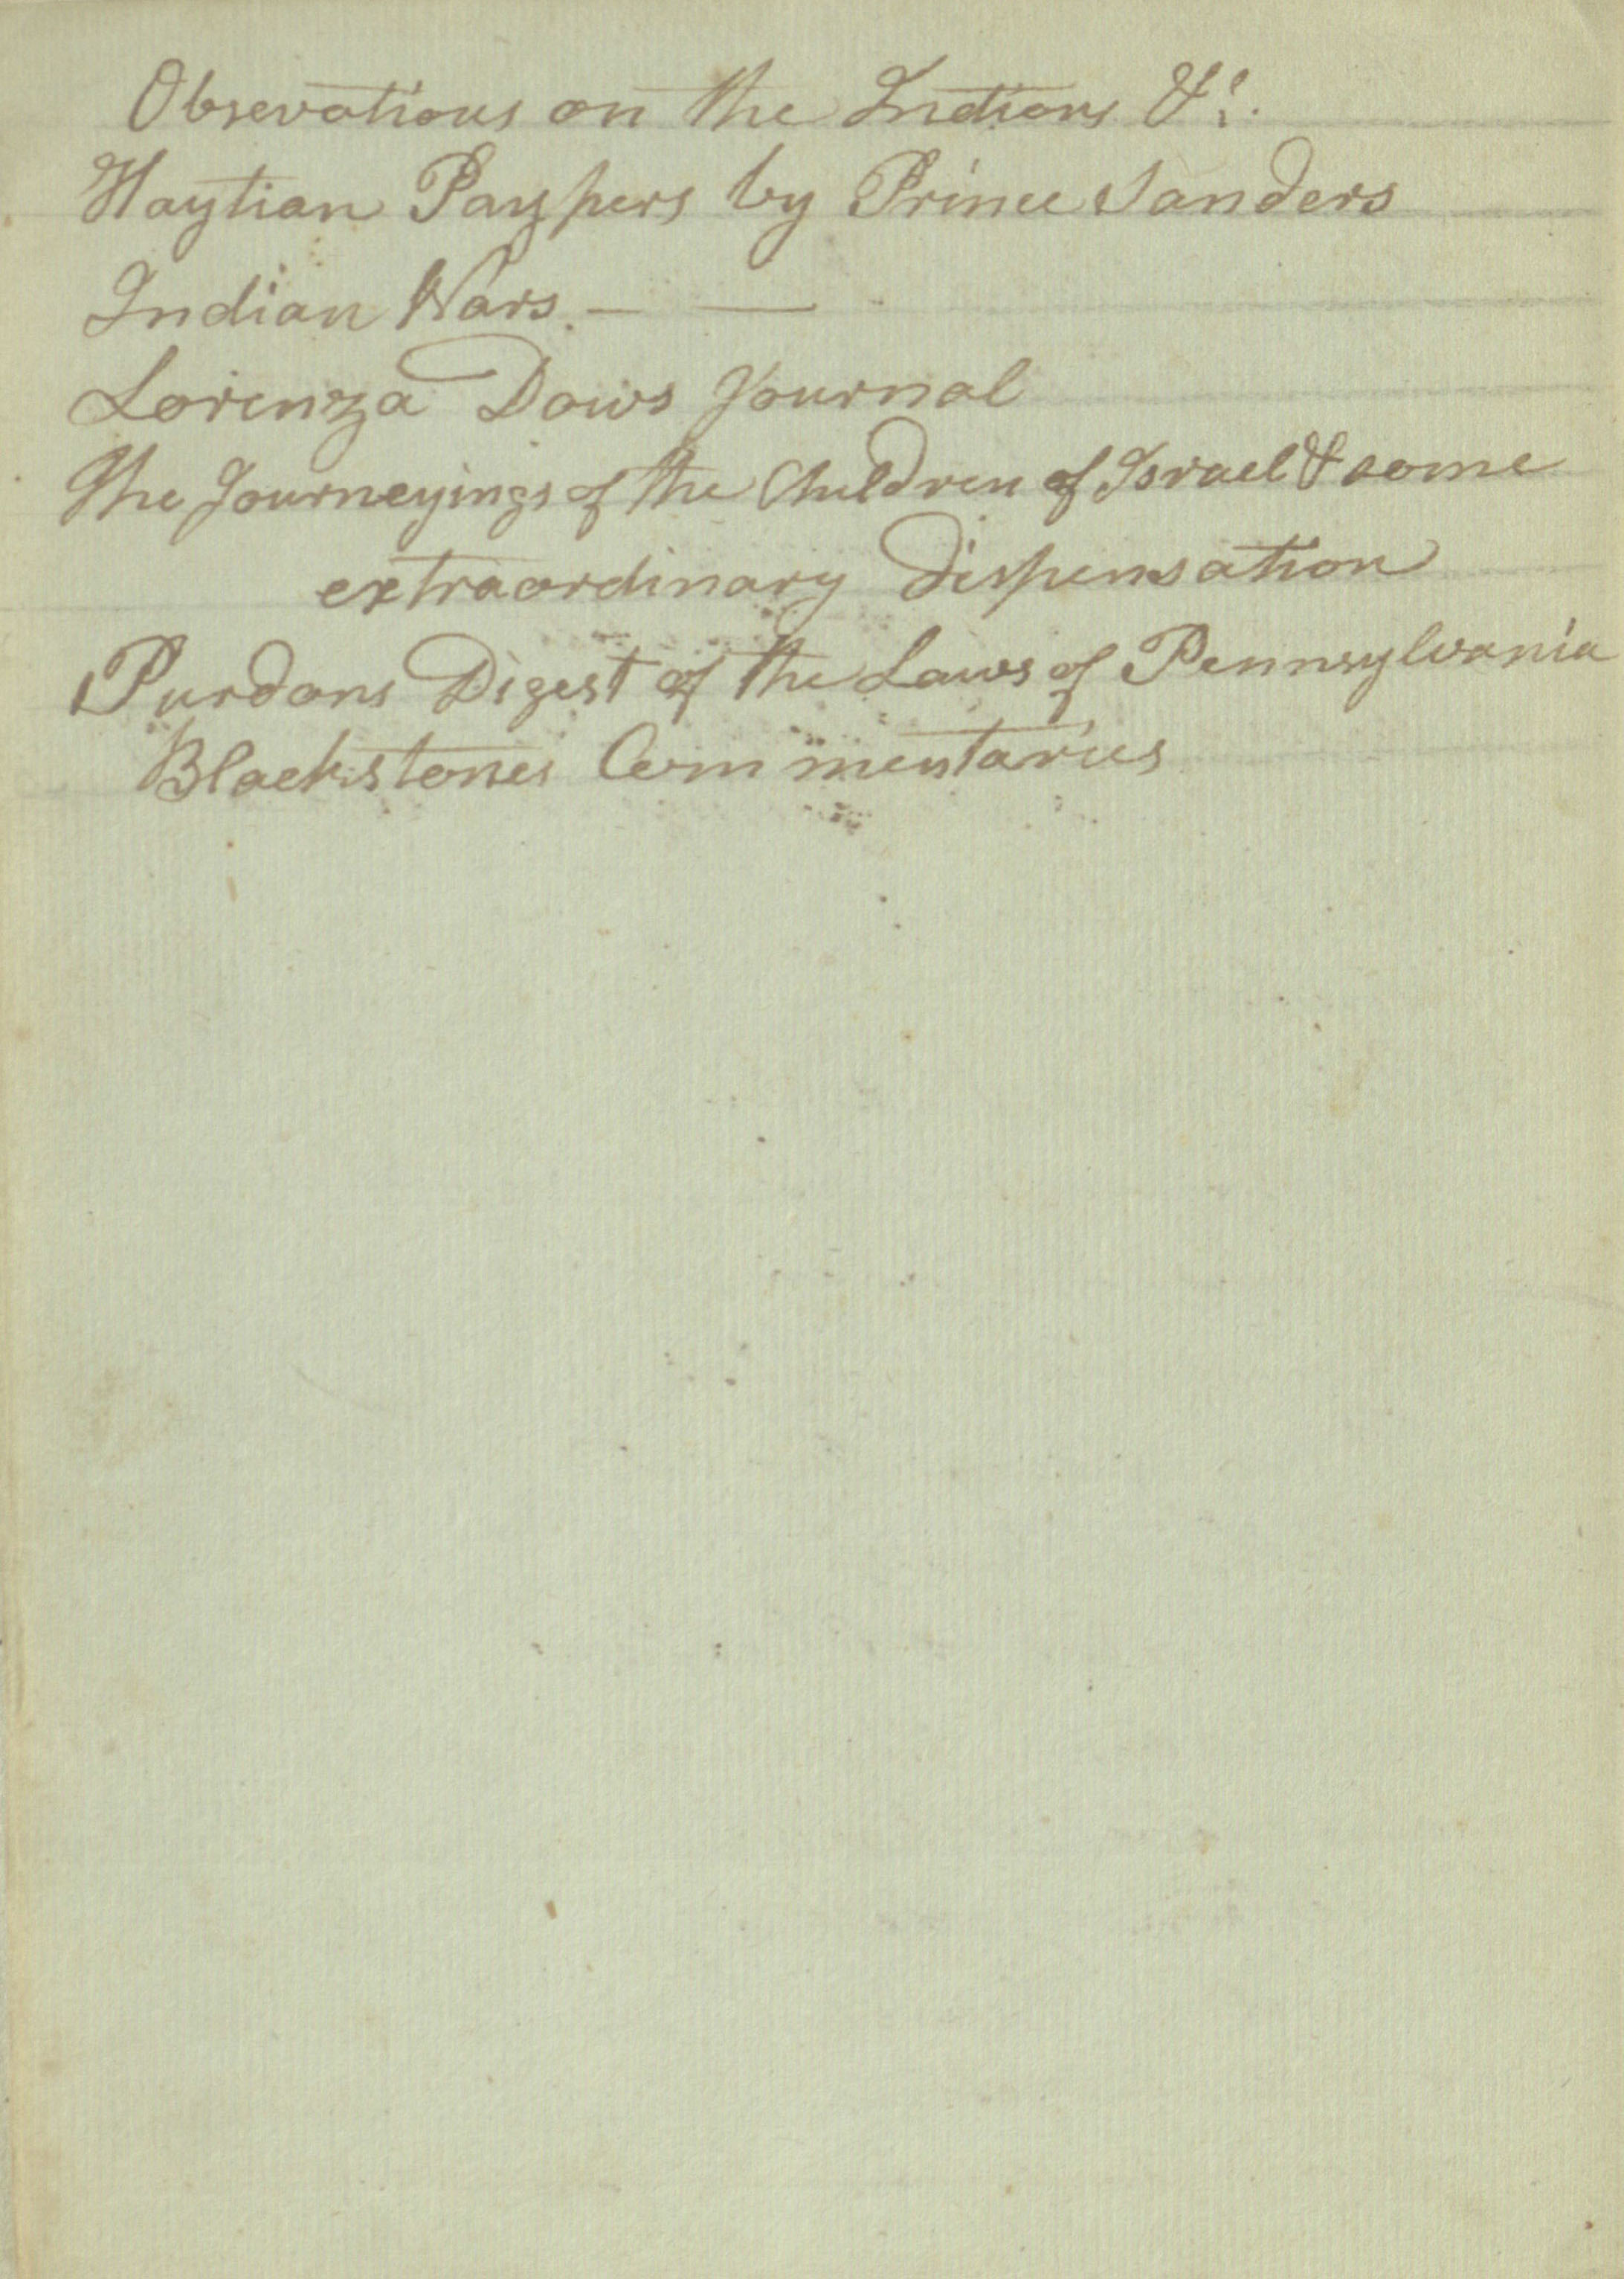 Obsevations on the Indians &c.
Haytian Paypers by Prince Sanders
Indian Wars. — —
Lorenza Dows Journal
The Journeyings of the Children of Israel & some
extraordinary dispensation
Purdons Digest of the Laws of Pennsylvania
Blackstones Commentaries